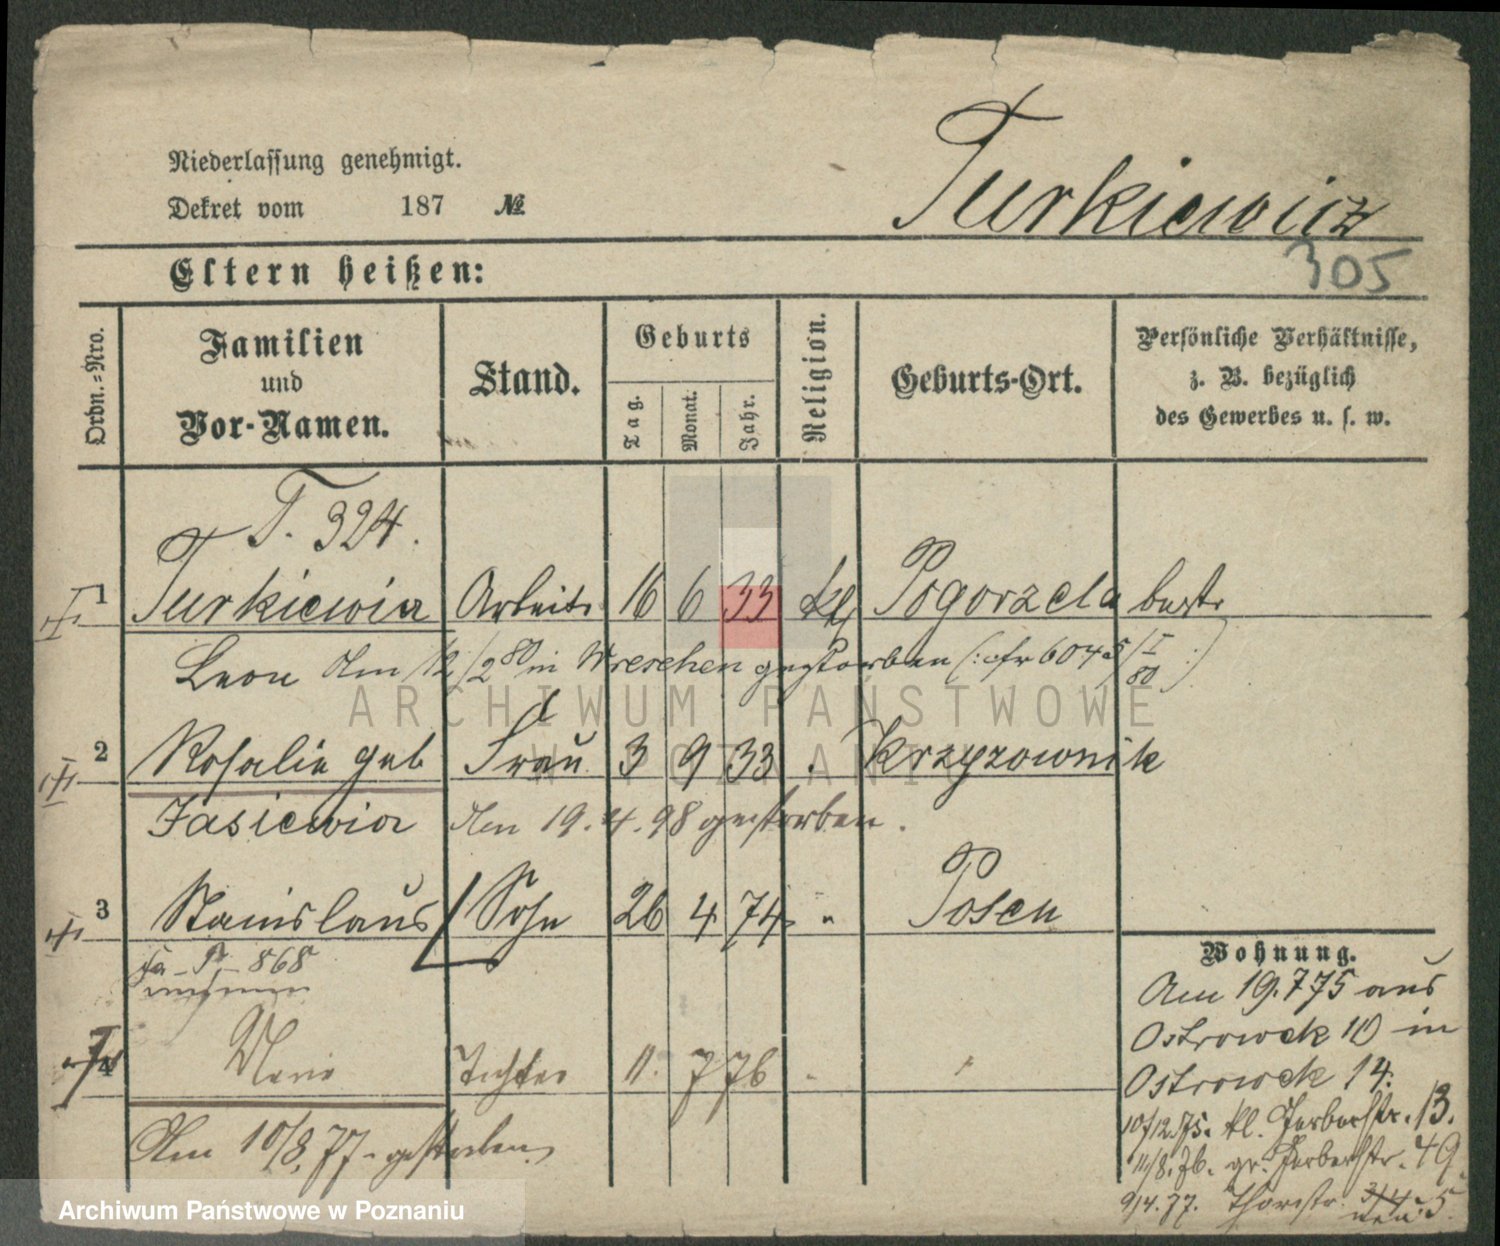 Niederlassung genehmigt.
Dekret vom 187 №
Turkiewicz
305
Eltern heißen:
Ordn.=Nro.
Familien
und
Vor-Namen.
Stand.
Geburts
Tag.
Monat.
Jahr.
Religion.
Geburts-Ort.
Persönliche Verhältnisse,
z. B. bezüglich
des Gewerbes u. s. w.
T. 324.
1 Turkiewicz Arbeitr 16 6 33 kth Pogorzela bestr
Leon Am 12/2 80 in Wreschen gestorben (: cfr 6045/I 80 :)
2 Rosalie geb Frau 3 9 33 " Krzyzownik
Jasiewicz Am 19.4.98 gestorben.
3 Stanislaus Sohn 26 4 74 " Posen
868
4 Marie Tochter 11. 7 76 " "
Am 10/8.77. gestorben
Wohnung.
Am 19.7 75 aus
Ostrowek 10 in
Ostrowek 14.
10/12.75. kl. Gerberstr. 13.
11/8.76. gr. Gerberstr. 49.
9/4.77. Thorstr. 3/4 neu: 5.
ARCHIWUM PAŃSTWOWE
W POZNANIU
Archiwum Państwowe w Poznaniu